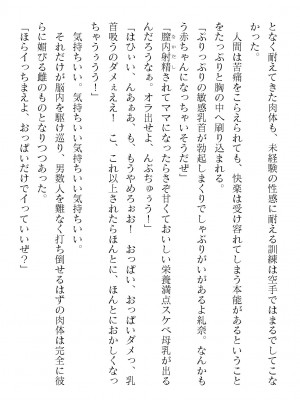 となく耐えてきた肉体も、未経験の性感に耐える訓練は空手ではまるでしてこな
かった。
　人間は苦痛をこらえられても、快楽は受け容れてしまう本能があるということ
をたっぷりと胸の中へ刷り込まれる。
「ぷりっぷりの敏感乳首が勃起しまくりでしゃぶりがいがあるぜ紘奈。なんかも
う赤ちゃんになっちゃいそうだぜ」
「膣内射精されてママになったらさぞ甘くておいしい栄養満点スケベ母乳が出る
んだろうなぁ。オラ出せよ、んぷぢゅぅう！」
「はひぃい、んあぁあ、も、もうやめろぉ！　おっぱい、おっぱいダメっ、乳
首吸うのダメぇええ！　こ、これ以上されたらほんとに、ほんとにおかしくなっ
ちゃうううう！」
　気持ちいい。気持ちいい気持ちいい。
　それだけが脳内を駆け巡り、男数人を難なく打ち倒せるはずの肉体は完全に彼
らに媚びる雌のものとなりつつあった。
「ほらイっちまえよ、おっぱいだけでイっていいぜ？」